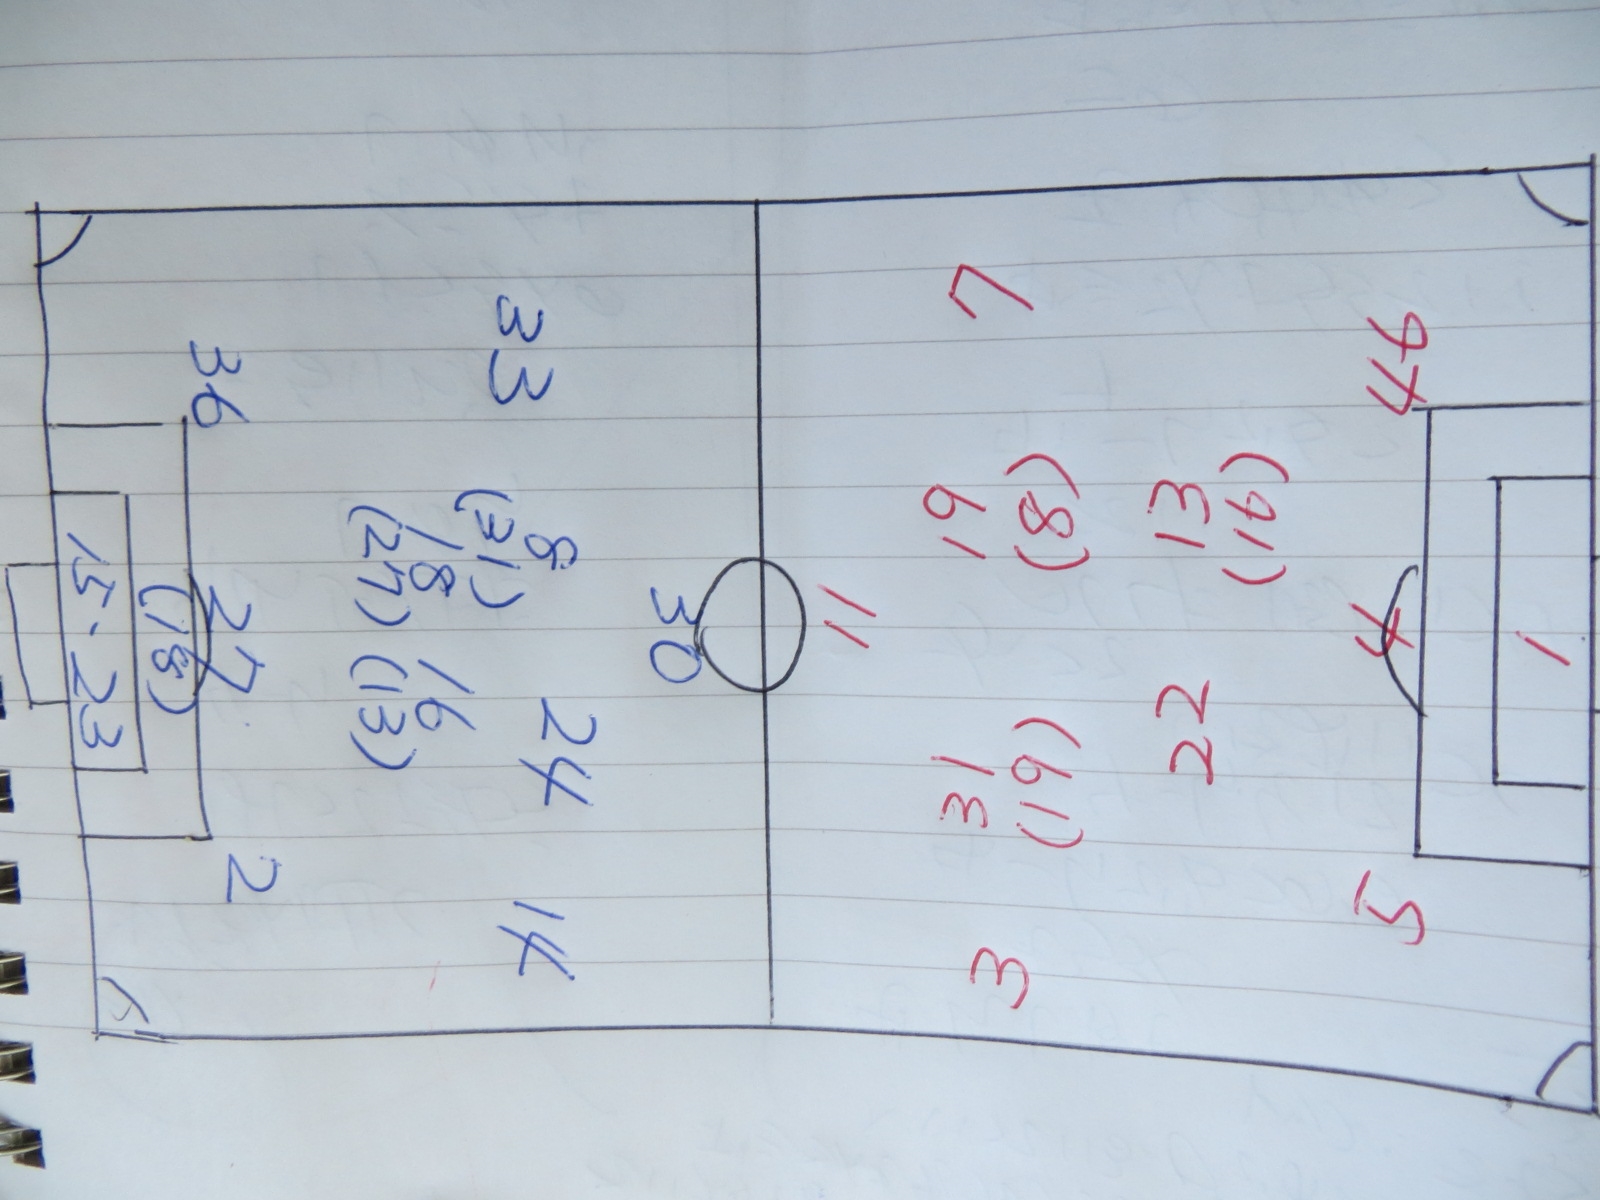 15·23
(18)
36
27
2
(27) (13)
18 16
(31)
33
8 24 14
30
11
7
19
31
3
(8)
(19)
13
22
(16)
46
4
5
1